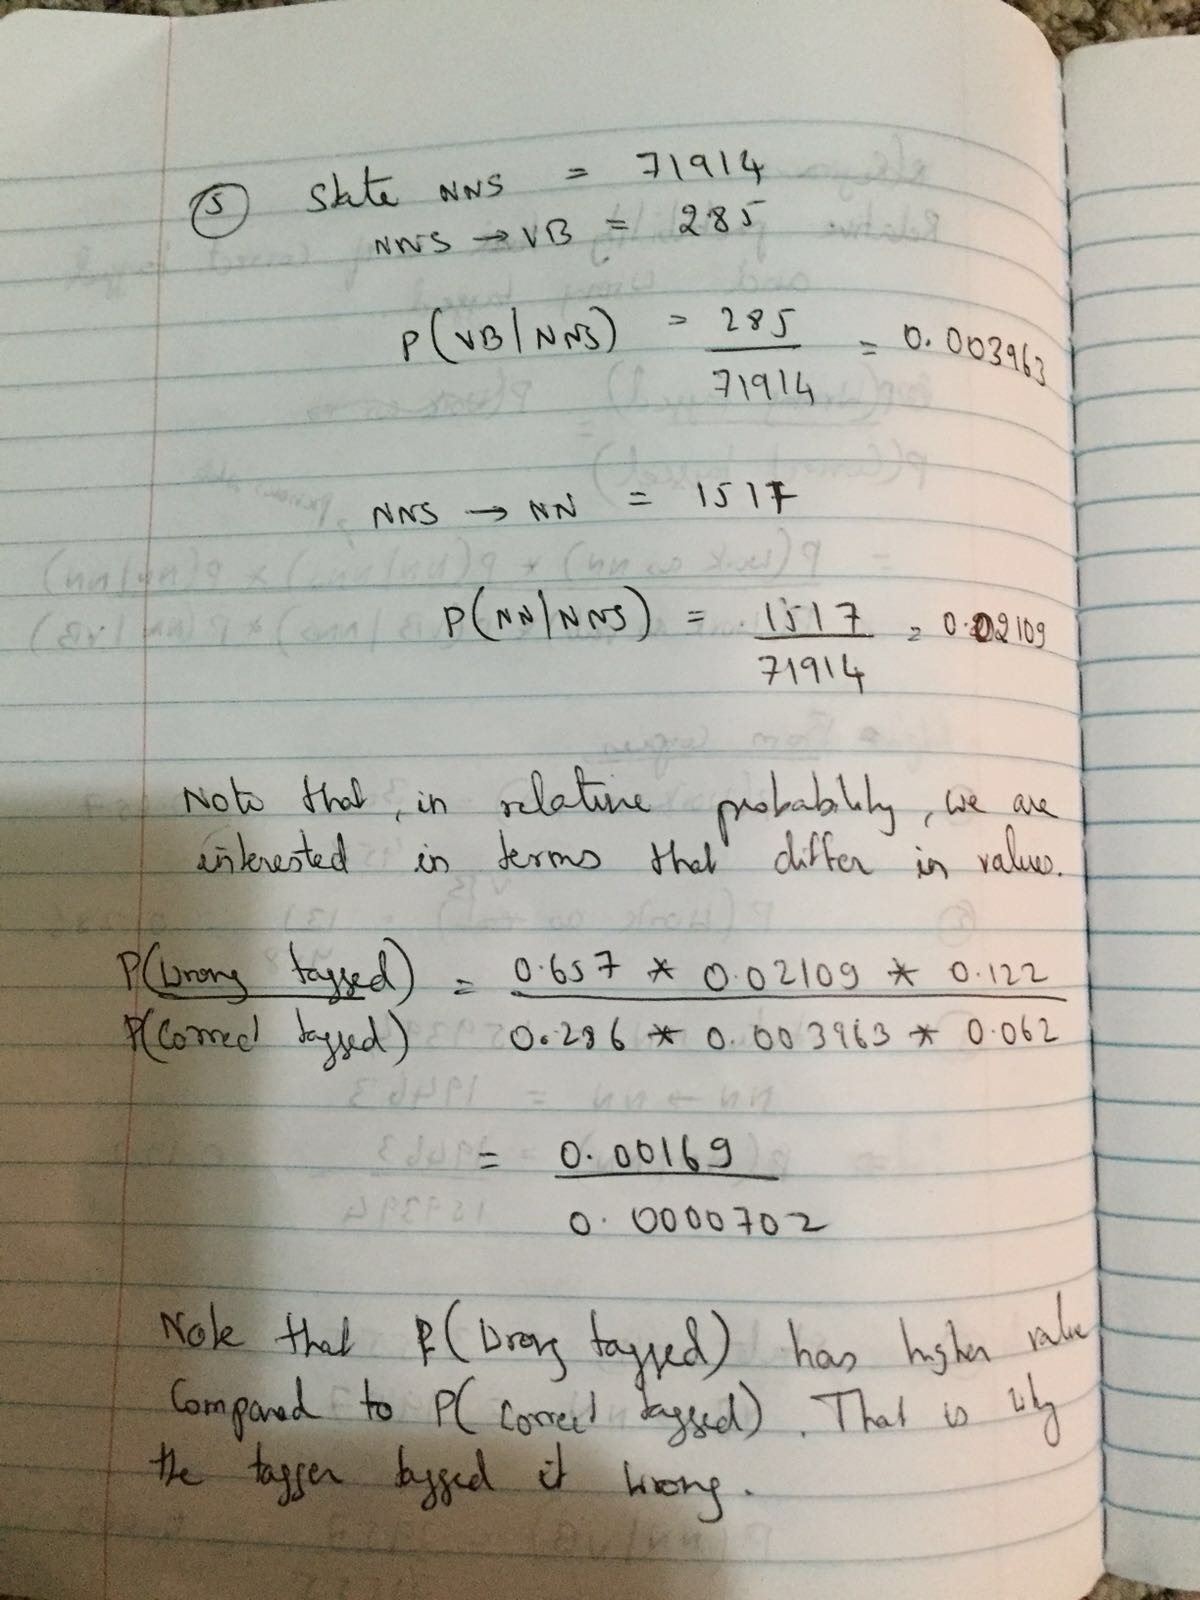 ⑤ State NNS = 71914
NNS → VB = 285
P(VB|NNS) = 285 / 71914 = 0.003963
NNS → NN = 1517
P(NN|NNS) = 1517 / 71914 = 0.02109
Note that, in relative probability, we are
interested in terms that differ in values.
P(Wrong tagged) / P(Correct tagged) = 0.657 * 0.02109 * 0.122 / 0.286 * 0.003963 * 0.062
= 0.00169 / 0.0000702
Note that P(Wrong tagged) has higher value
Compared to P(Correct tagged). That is why
the tagger tagged it wrong.